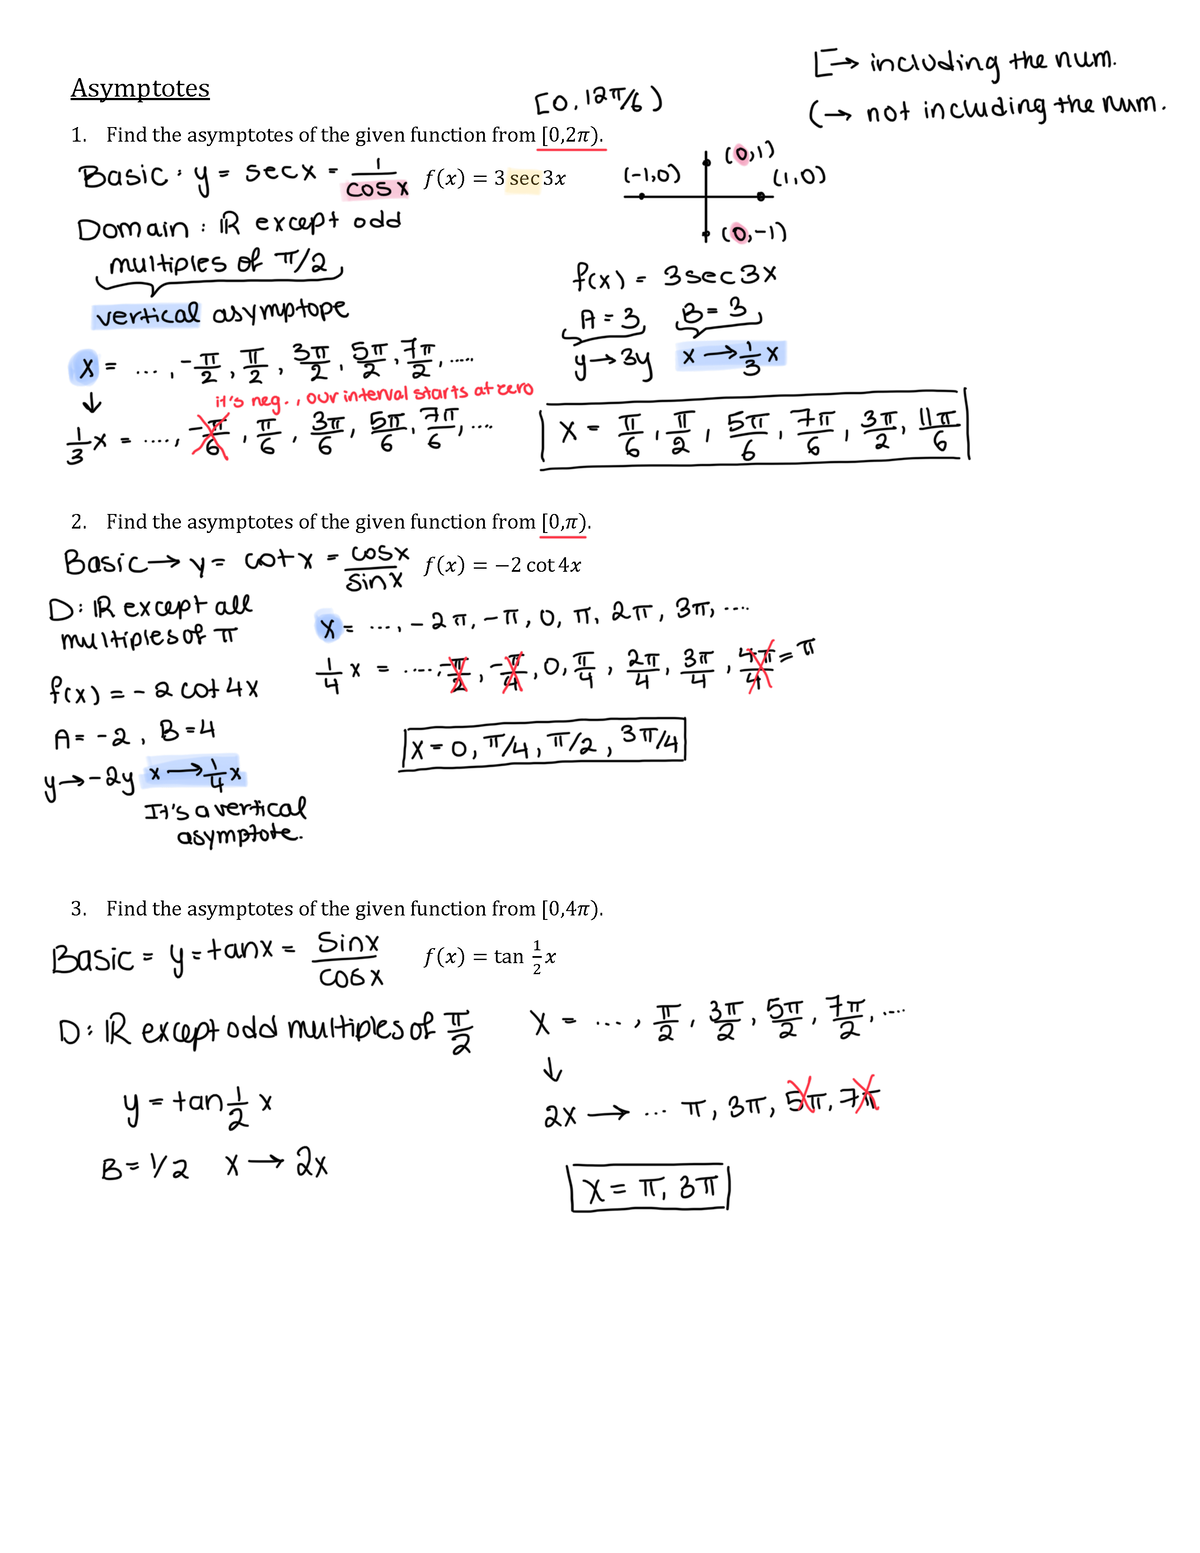 [→ including the num.
Asymptotes
[0, 12π/6)
(→ not including the num.
1. Find the asymptotes of the given function from [0,2π).
Basic: y = secx = 1/cosx f(x) = 3 sec 3x
(0,1)
(-1,0) (1,0)
(0,-1)
Domain: ℝ except odd
multiples of π/2,
vertical asymptope
f(x) = 3sec3x
A = 3, B = 3,
y→3y x→1/3 x
x = ..., -π/2, π/2, 3π/2, 5π/2, 7π/2, .....
↓ it's neg., our interval starts at zero
1/3 x = ...., -π/6, π/6, 3π/6, 5π/6, 7π/6, ....
x = π/6, π/2, 5π/6, 7π/6, 3π/2, 11π/6
2. Find the asymptotes of the given function from [0,π).
Basic→ y = cotx = cosx/sinx f(x) = −2 cot 4x
D: ℝ except all
multiples of π
x = ..., -2π, -π, 0, π, 2π, 3π, ....
1/4 x = ....-π/2, -π/4, 0, π/4, 2π/4, 3π/4, 4π/4 = π
f(x) = -2cot4x
A = -2, B = 4
y→-2y x→1/4 x
It's a vertical
asymptote.
x = 0, π/4, π/2, 3π/4
3. Find the asymptotes of the given function from [0,4π).
Basic = y = tanx = sinx/cosx f(x) = tan 1/2 x
D: ℝ except odd multiples of π/2
x = ..., π/2, 3π/2, 5π/2, 7π/2, ....
↓
y = tan 1/2 x
2x → ... π, 3π, 5π, 7π
B = 1/2 x → 2x
x = π, 3π